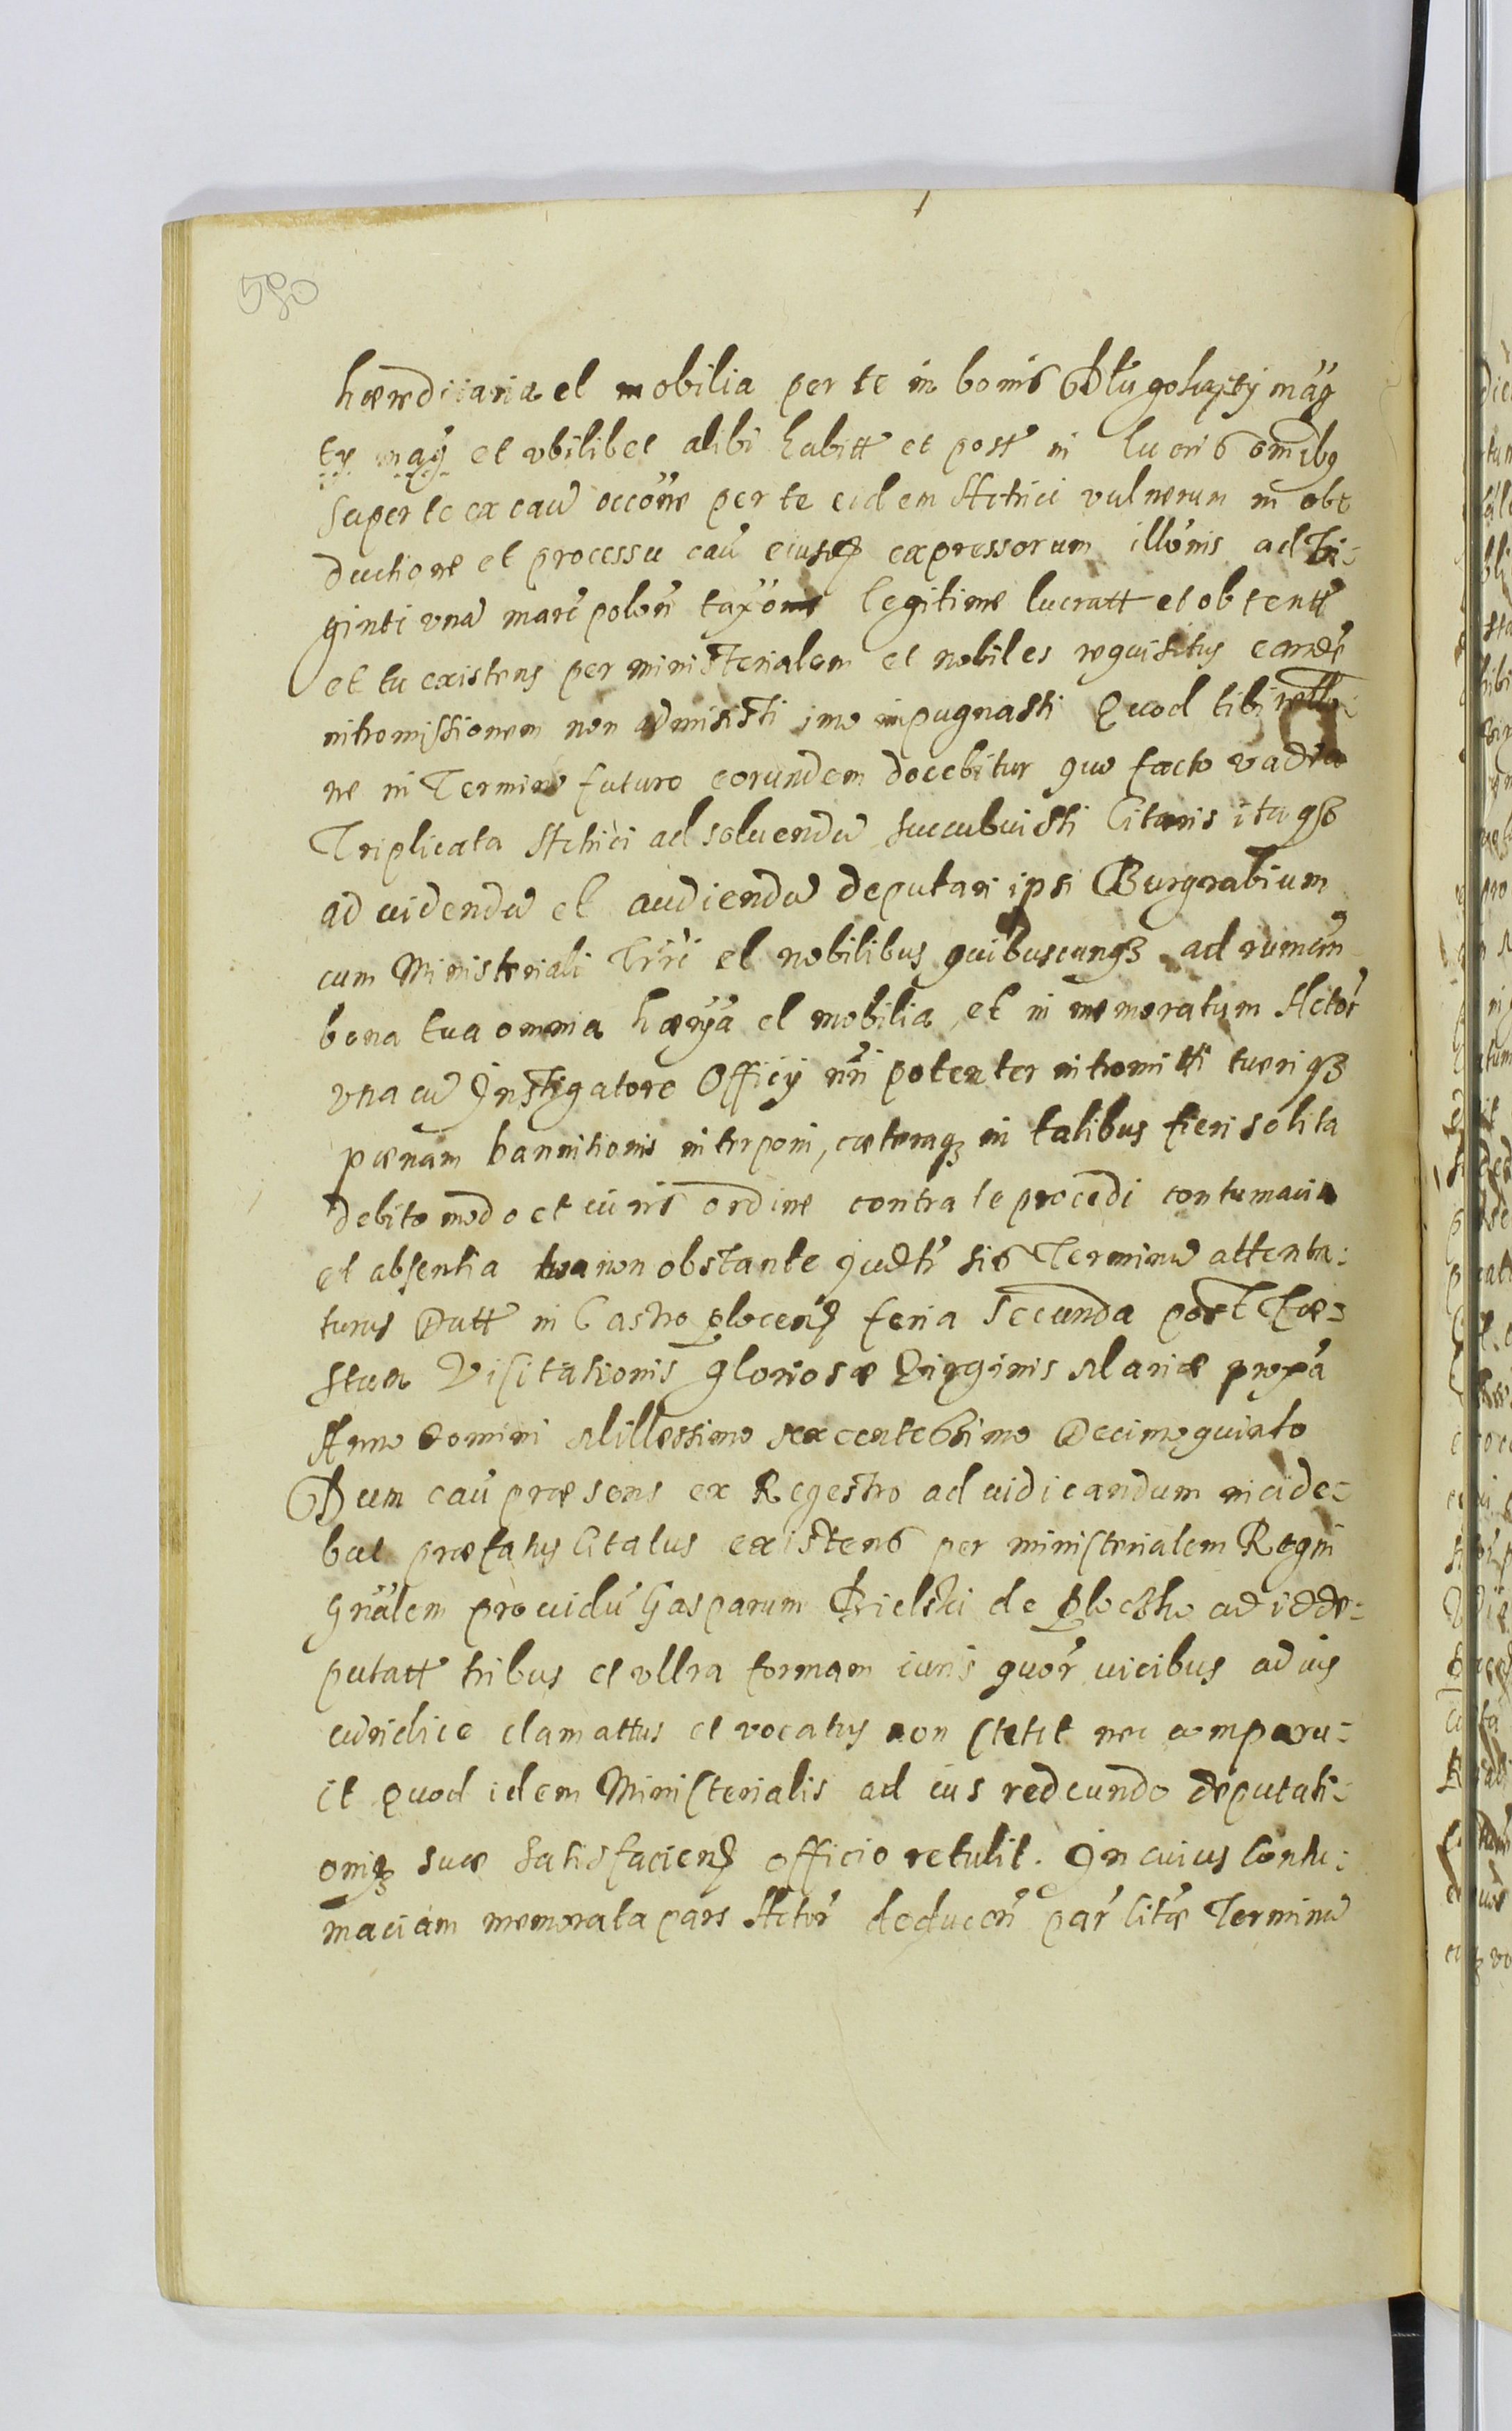 580
hæreditaria et mobilia per te in bonis Długołąty mağ
et vbilibet alibi habitt et posst in lucris omibus
super te ex cau occōne per te eidem Actrici vulnerum in ob
ductione et processu cau eiusd expressorum illōnis ad Tri=
ginti vnā marc polon taxōne legitime lucratt et obtentt
et tu existens per ministerialem et nobiles requisitus eande
intromissionem non admisisti imo inpugnasti Quod tibi
ne in Termino futuro eorundem docebitur quo facto vadia
Triplicata Actrici ad soluendū succubuisti Citaris itaqz
ad uidendū et audiendū deputari ipsi Burgrabium
cum Ministeriali Trři et nobilibus quibuscunqz ad
bona tua omnia hærÿa et mobilia, et in memoratum Actor
vna cū Instigatore Officij nri potenter intromitti tueriqz
pænam bannitionis interponi, cæteraqz in talibus fieri solita
debito modo et iuris ordine contra te procedi contumacia
et absentia tua non obstante Judtr sis Terminū attenta:
turus Datt in Castro plocens feria Secunda post Fæ=
stum Visitationis gloriosæ Virginis Mariæ proxa
Anno Domini Millessimo sexcentessimo Decimoquinto
Dum cau præsens ex Regestro ad iudicandum incide=
bat præfatus Citatus existens per ministerialem Regni
Gnälem prouidū Gasparum Bielski de Ploczko ad id de=
putatt tribus et vltra formam iuris quor uicibus ad ius
iuridice clamattus et vocatus non stetit nec comparu=
it Quod idem Ministerialis ad ius redeundo deputati=
oniqz suæ satisfaciens officio retulit. In cuius Contu=
maciam memorata pars Actor deducen par Citæ Terminū